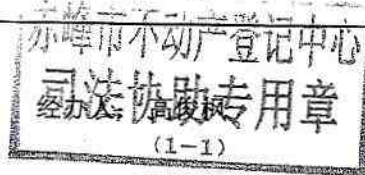 赤峰市不动产登记中心
司法协助专用章
经办人：高俊枫
（1-1）